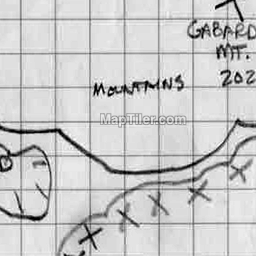 GABARD
MT.
202
MOUNTAINS
MapTiler.com